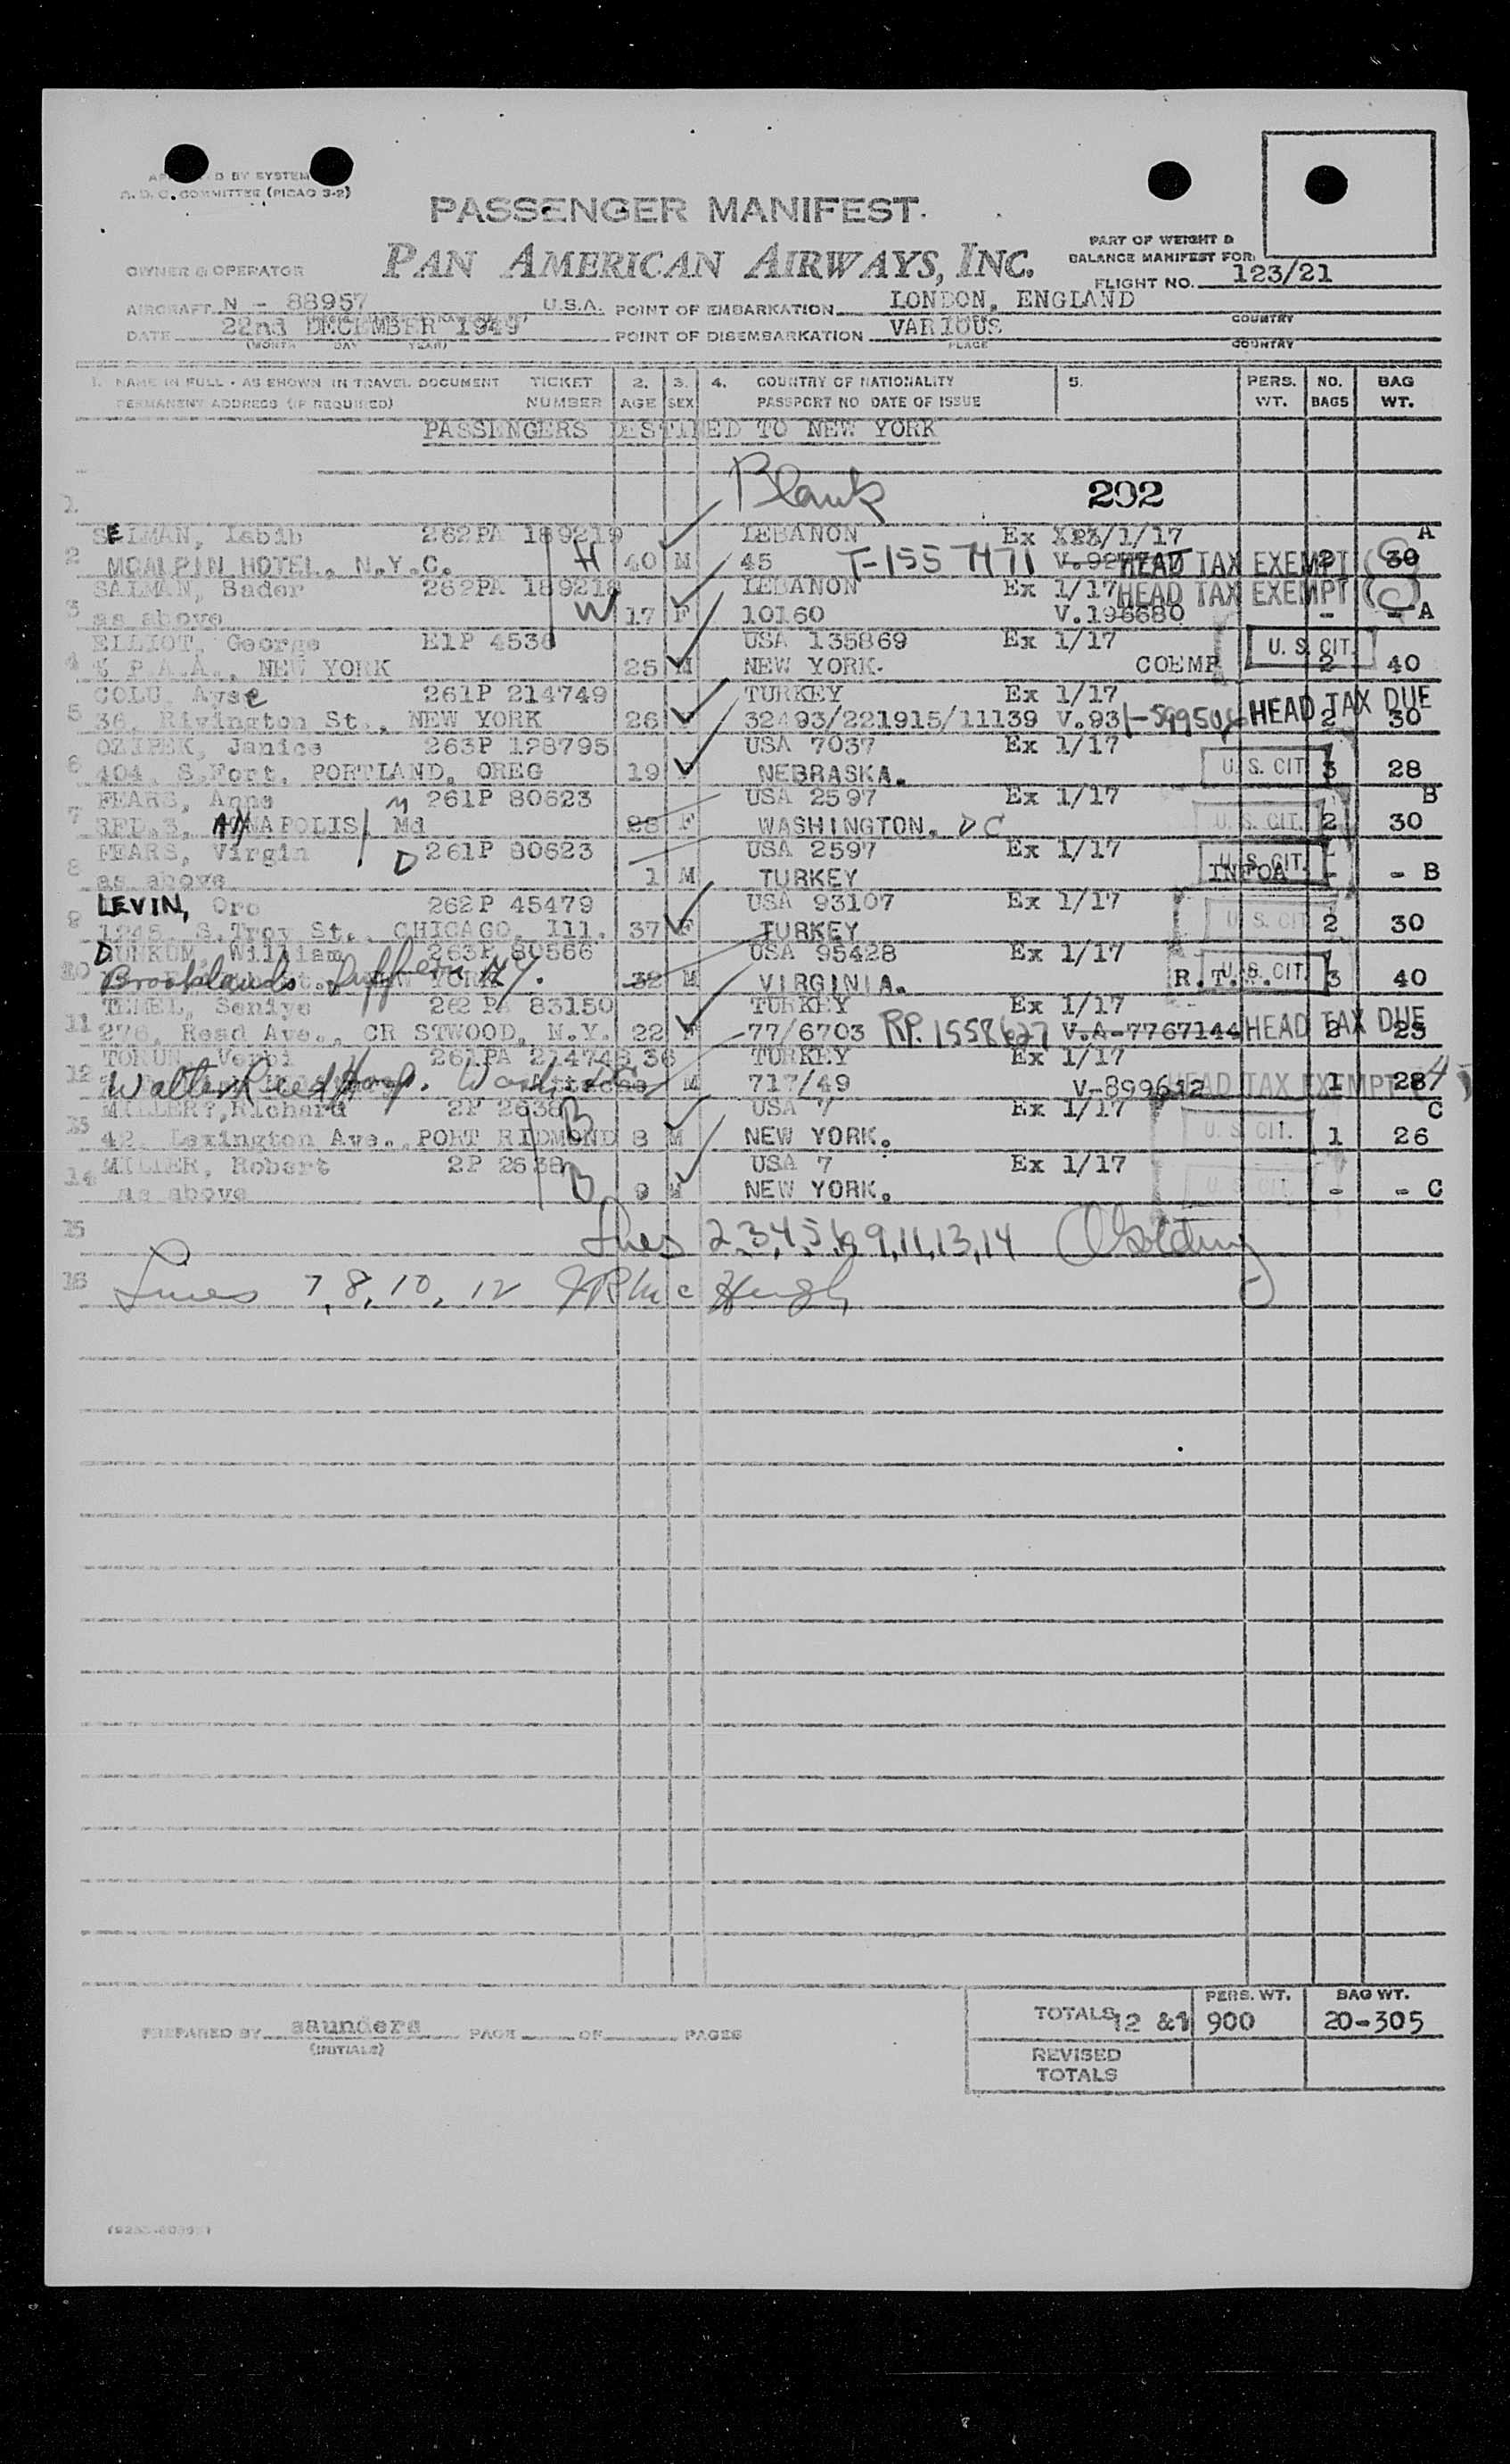 D BY SYSTEM
A. D. C. COMMITTEE (PICAO 3-2)
PASSENGER MANIFEST
PAN AMERICAN AIRWAYS, INC.
PART OF WEIGHT &
BALANCE MANIFEST FOR:
OWNER & OPERATOR
FLIGHT NO. 123/21
AIRCRAFT N - 88957 U.S.A. POINT OF EMBARKATION LONDON, ENGLAND
COUNTRY
DATE 22nd DECEMBER 1949 POINT OF DISEMBARKATION VARIOUS
(MONTH DAY YEAR) PLACE COUNTRY
1. NAME IN FULL - AS SHOWN IN TRAVEL DOCUMENT TICKET 2. 3. 4. COUNTRY OF NATIONALITY 5. PERS. NO. BAG
PERMANENT ADDRESS (IF REQUIRED) NUMBER AGE SEX PASSPORT NO DATE OF ISSUE WT. BAGS WT.
PASSENGERS DESTINED TO NEW YORK
Blank 202
1.
SELMAN, Labib 262PA 189219 LEBANON Ex 1/17 A
2 MCALPIN HOTEL, N.Y.C. H 40 M 45 T-1557471 HEAD TAX EXEMPT 2 30
SALMAN, Bader 262PA 189218 LEBANON Ex 1/17 HEAD TAX EXEMPT
3 as above W 17 F 10160 V.198680 - - A
ELLIOT, George E1P 4536 USA 135869 Ex 1/17 U. S. CIT.
4 % P.A.A., NEW YORK 25 M NEW YORK. COEMP 2 40
COLU, Ayse 261P 214749 TURKEY Ex 1/17 HEAD TAX DUE
5 36, Rivington St., NEW YORK 26 32493/221915/11139 V.93 2 30
OZIPEK, Janice 263P 128795 USA 7037 Ex 1/17
6 404, S.Fort, PORTLAND, OREG 19 NEBRASKA. U. S. CIT. 3 28
FEARS, Anna M 261P 80623 USA 2597 Ex 1/17 B
7 RFD.3, ANNAPOLIS, Md 28 F WASHINGTON, DC U. S. CIT. 2 30
FEARS, Virgin D 261P 80623 USA 2597 Ex 1/17 U. S. CIT.
8 as above 1 M TURKEY INFOA - - B
LEVIN, Oro 262P 45479 USA 93107 Ex 1/17
9 1245, S.Troy St., CHICAGO, Ill. 37 F TURKEY U. S. CIT 2 30
DURKUM, William 263P 80566 USA 95428 Ex 1/17
10 Brooklands, Suffern N.Y. 32 M VIRGINIA. R.T.M. U. S. CIT. 3 40
TEMEL, Seniye 262 PA 83150 TURKEY Ex 1/17
11 276, Read Ave., CRESTWOOD, N.Y. 22 F 77/6703 RP.1558627 V.A-7767144 HEAD TAX DUE 2 23
TORUN, Verbi 261PA 214748 36 TURKEY Ex 1/17
12 Walter Reed Hosp. Wash. DC M 717/49 V-899612 HEAD TAX EXEMPT 1 28
MILLER, Richard 2P 2638 B USA 7 Ex 1/17 C
13 42, Lexington Ave., PORT RIDMOND 8 M NEW YORK. U. S. CIT. 1 26
MILLER, Robert 2P 2638 B USA 7 Ex 1/17
14 as above 9 M NEW YORK. U. S. CIT. - - C
15 Lines 2,3,4,5,6,9,11,13,14 Golding
16 Lines 7,8,10,12 JR McHugh
PERS. WT. BAG WT.
TOTALS 12 &1 900 20-305
PREPARED BY saunders PAGE OF PAGES
(INITIALS)
REVISED
TOTALS